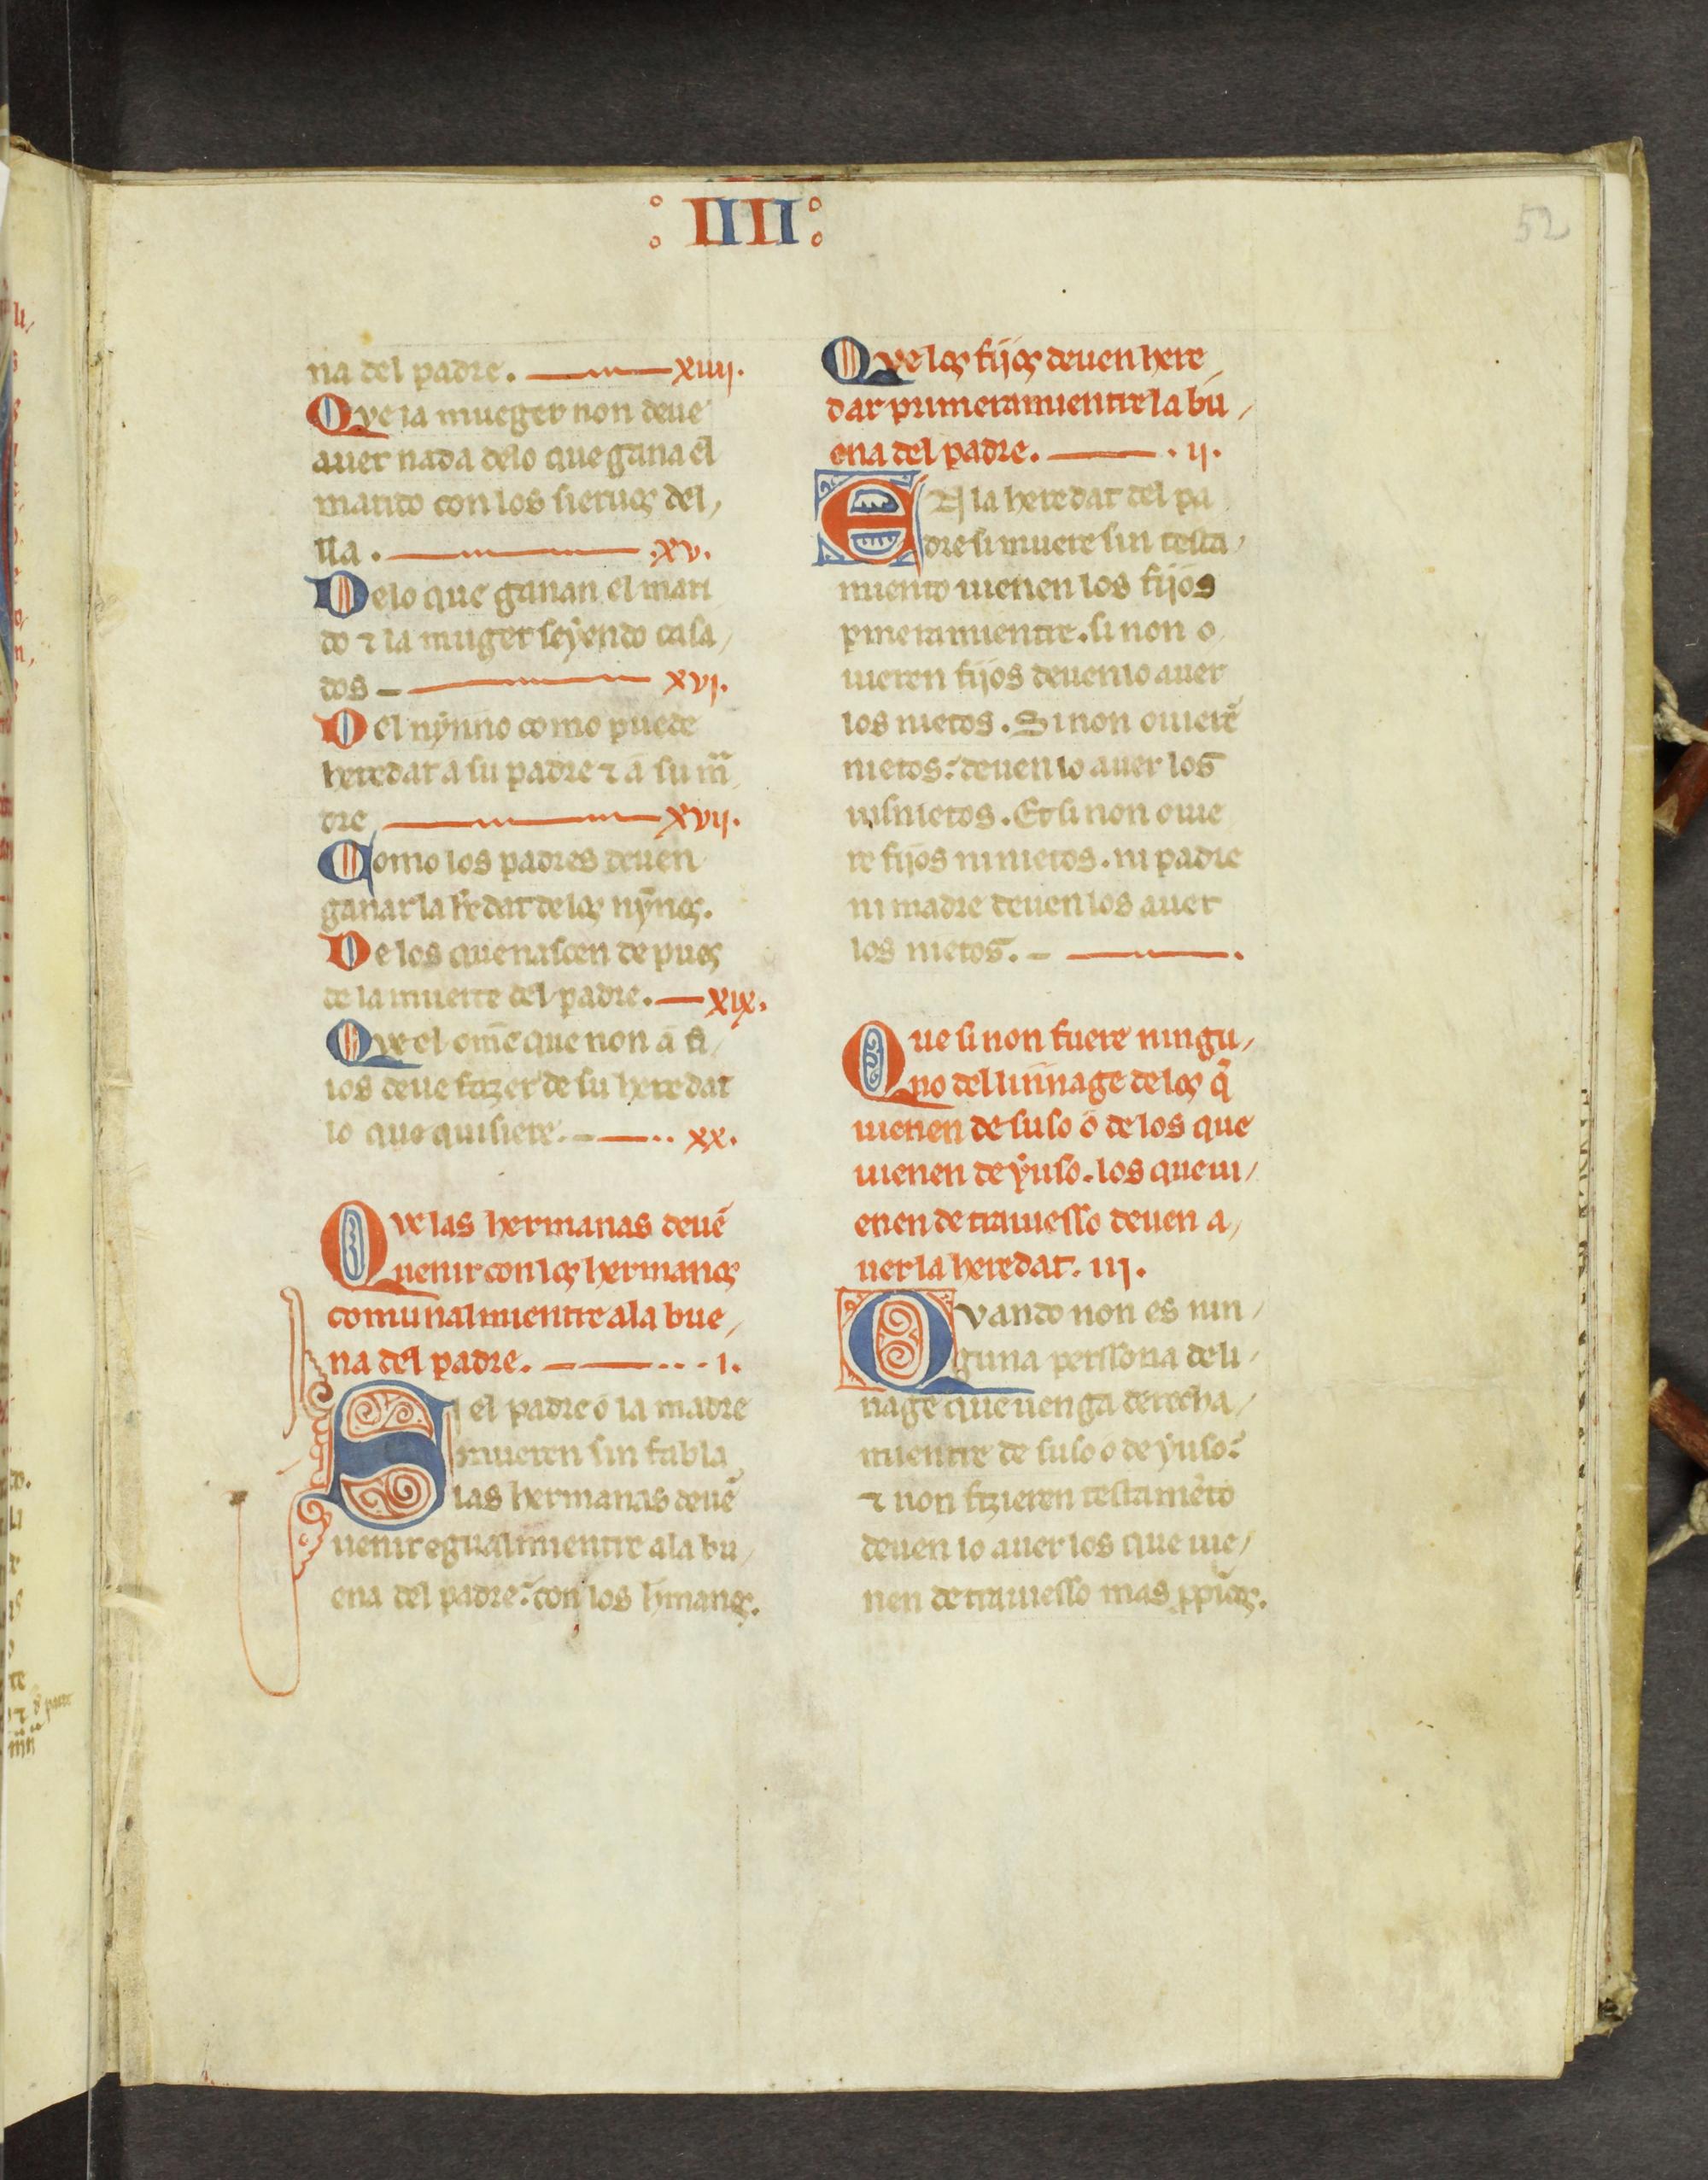 : IIII :
52
na del padre. xiiij.
Qve la mueger non deue
auer nada delo que gana el
marido con los sieruos del,
lla. .xv.
Delo que ganan el mari
do ⁊ la muger seyendo casa,
dos xvj.
Del nynno como puede
heredar a su padre ⁊ a su ma
dre xvij.
Como los padres deuen
ganar la hedat delos nȳnos.
De los que nascen depues
de la muerte del padre. xix.
Qve el om̄e que non a fi,
ios deue fazer de su heredat
lo que quisiere. xx.
Qve las hermanas deuē
uenir con los hermanos
comunalmientre ala bue,
na del padre. .i.
Si el padre o la madre
mueren sin fabla
las hermanas deuē
uenir egualmientre ala bu,
ena del padre: con los h̄manos.
Qve los fijos deuen here,
dar primeramientre la bu,
ena del padre. .ij.
En la heredat del pa
dre si muere sin testa,
miento uienen los fijos
p̄meramientre. si non o,
uieren fijos deuenlo auer
los nietos. Si non ouierē
nietos: deuen lo auer los
uisnietos. Et si non ouie
re fijos ni nietos. ni padre
ni madre deuen los auer
los nietos.
Que si non fuere ningu,
no del linnage delos q̄
uienen de suso o de los que
uienen de yuso. los que ui,
enen de trauiesso deuen a,
uer la heredat. iij.
Qvando non es nin,
guna perssona de li,
nage que uenga derecha,
mientre de suso o de yuso:
⁊ non fizieren testamēto
deuen lo auer los que uie,
nen de trauiesso mas